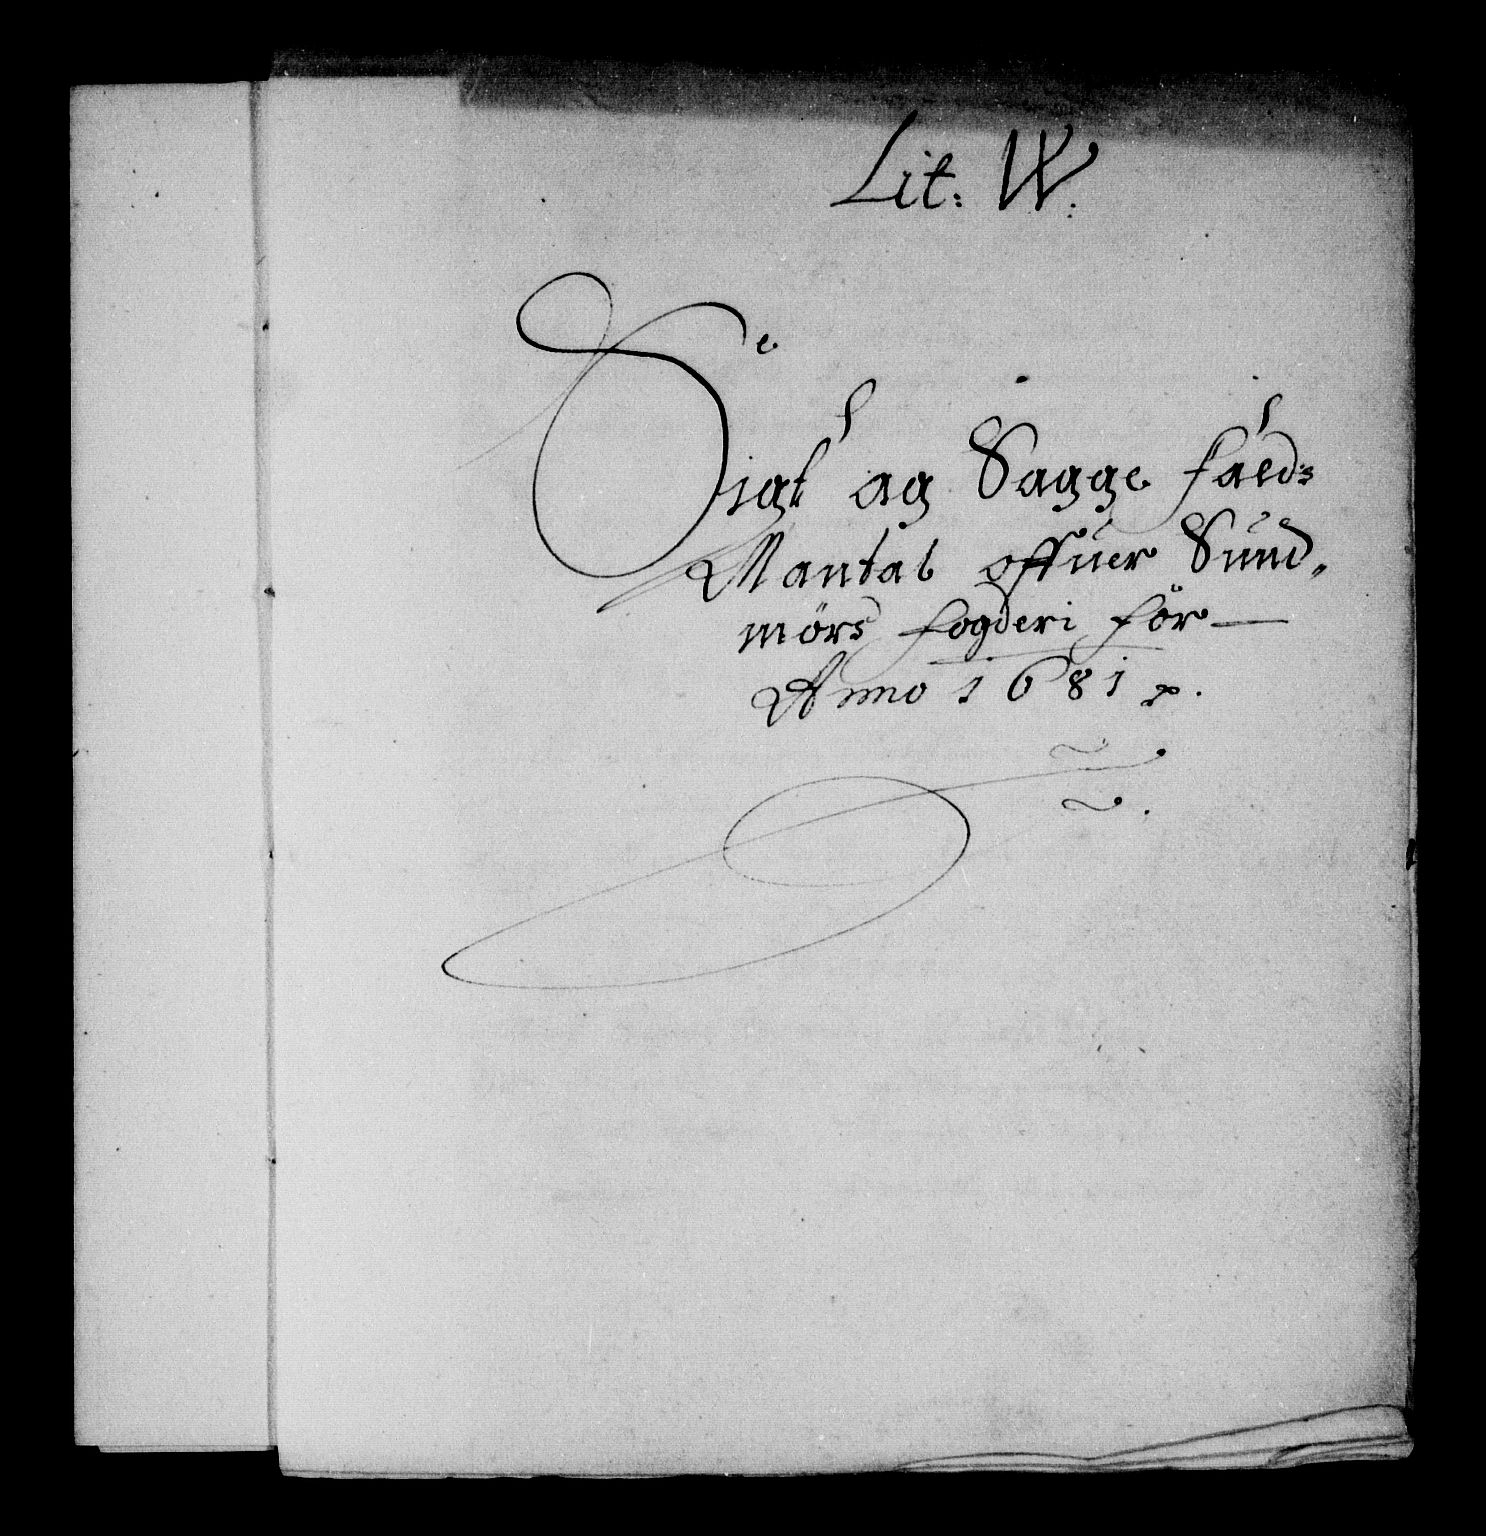 Lit: W:
Sigt og Sagge falds
Mantal offuer Sund„
mörs fogderi för —
Anno 1681 p.